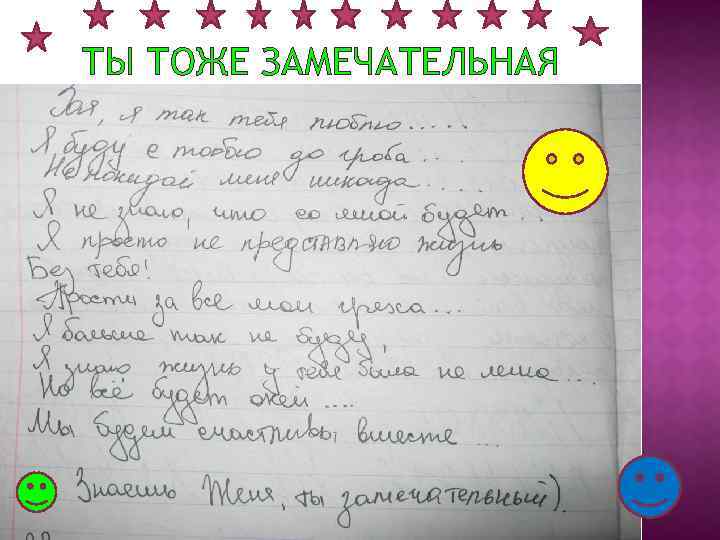 ТЫ ТОЖЕ ЗАМЕЧАТЕЛЬНАЯ
Зая, я так тебя люблю.....
Я буду с тобою до гроба....
Не покидай меня никада....
Я не знаю, что со мной будет...
Я просто не представляю жизнь
Без тебя!
Прости за все мои греха...
Я больше так не буду,
Я знаю жизнь у тебя была не леша...
Но всё будет окей....
Мы будем счастливы вместе...
Знаешь Женя, ты замечательный).